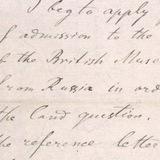 I beg to apply
of admission to the
of the British Muse
from Russia in ord
the Land question.
the reference letter